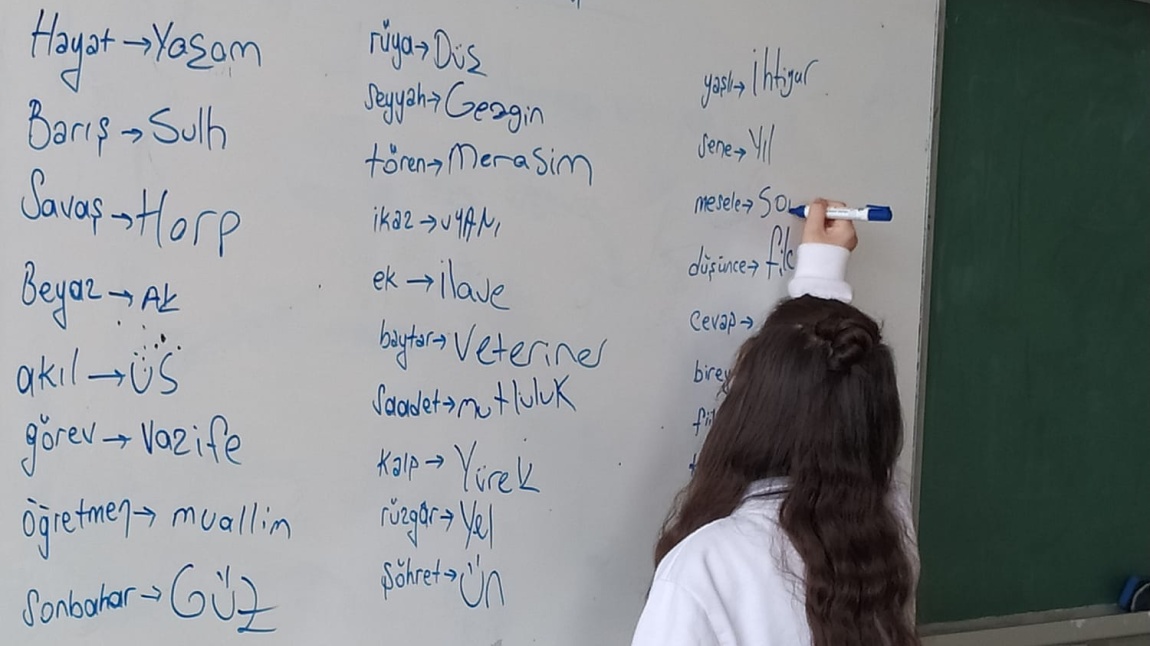 Hayat → Yaşam
Barış → Sulh
Savaş → Harp
Beyaz → AK
akıl → ÜS
görev → Vazife
öğretmen → muallim
sonbahar → GÜZ
rüya → Düş
seyyah → Gezgin
tören → Merasim
ikaz → UYARI
ek → ilave
baytar → Veteriner
saadet → mutluluk
kalp → Yürek
rüzgar → Yel
şöhret → Ün
yaşlı → ihtiyar
sene → Yıl
mesele → So
düşünce → fik
cevap →
birey